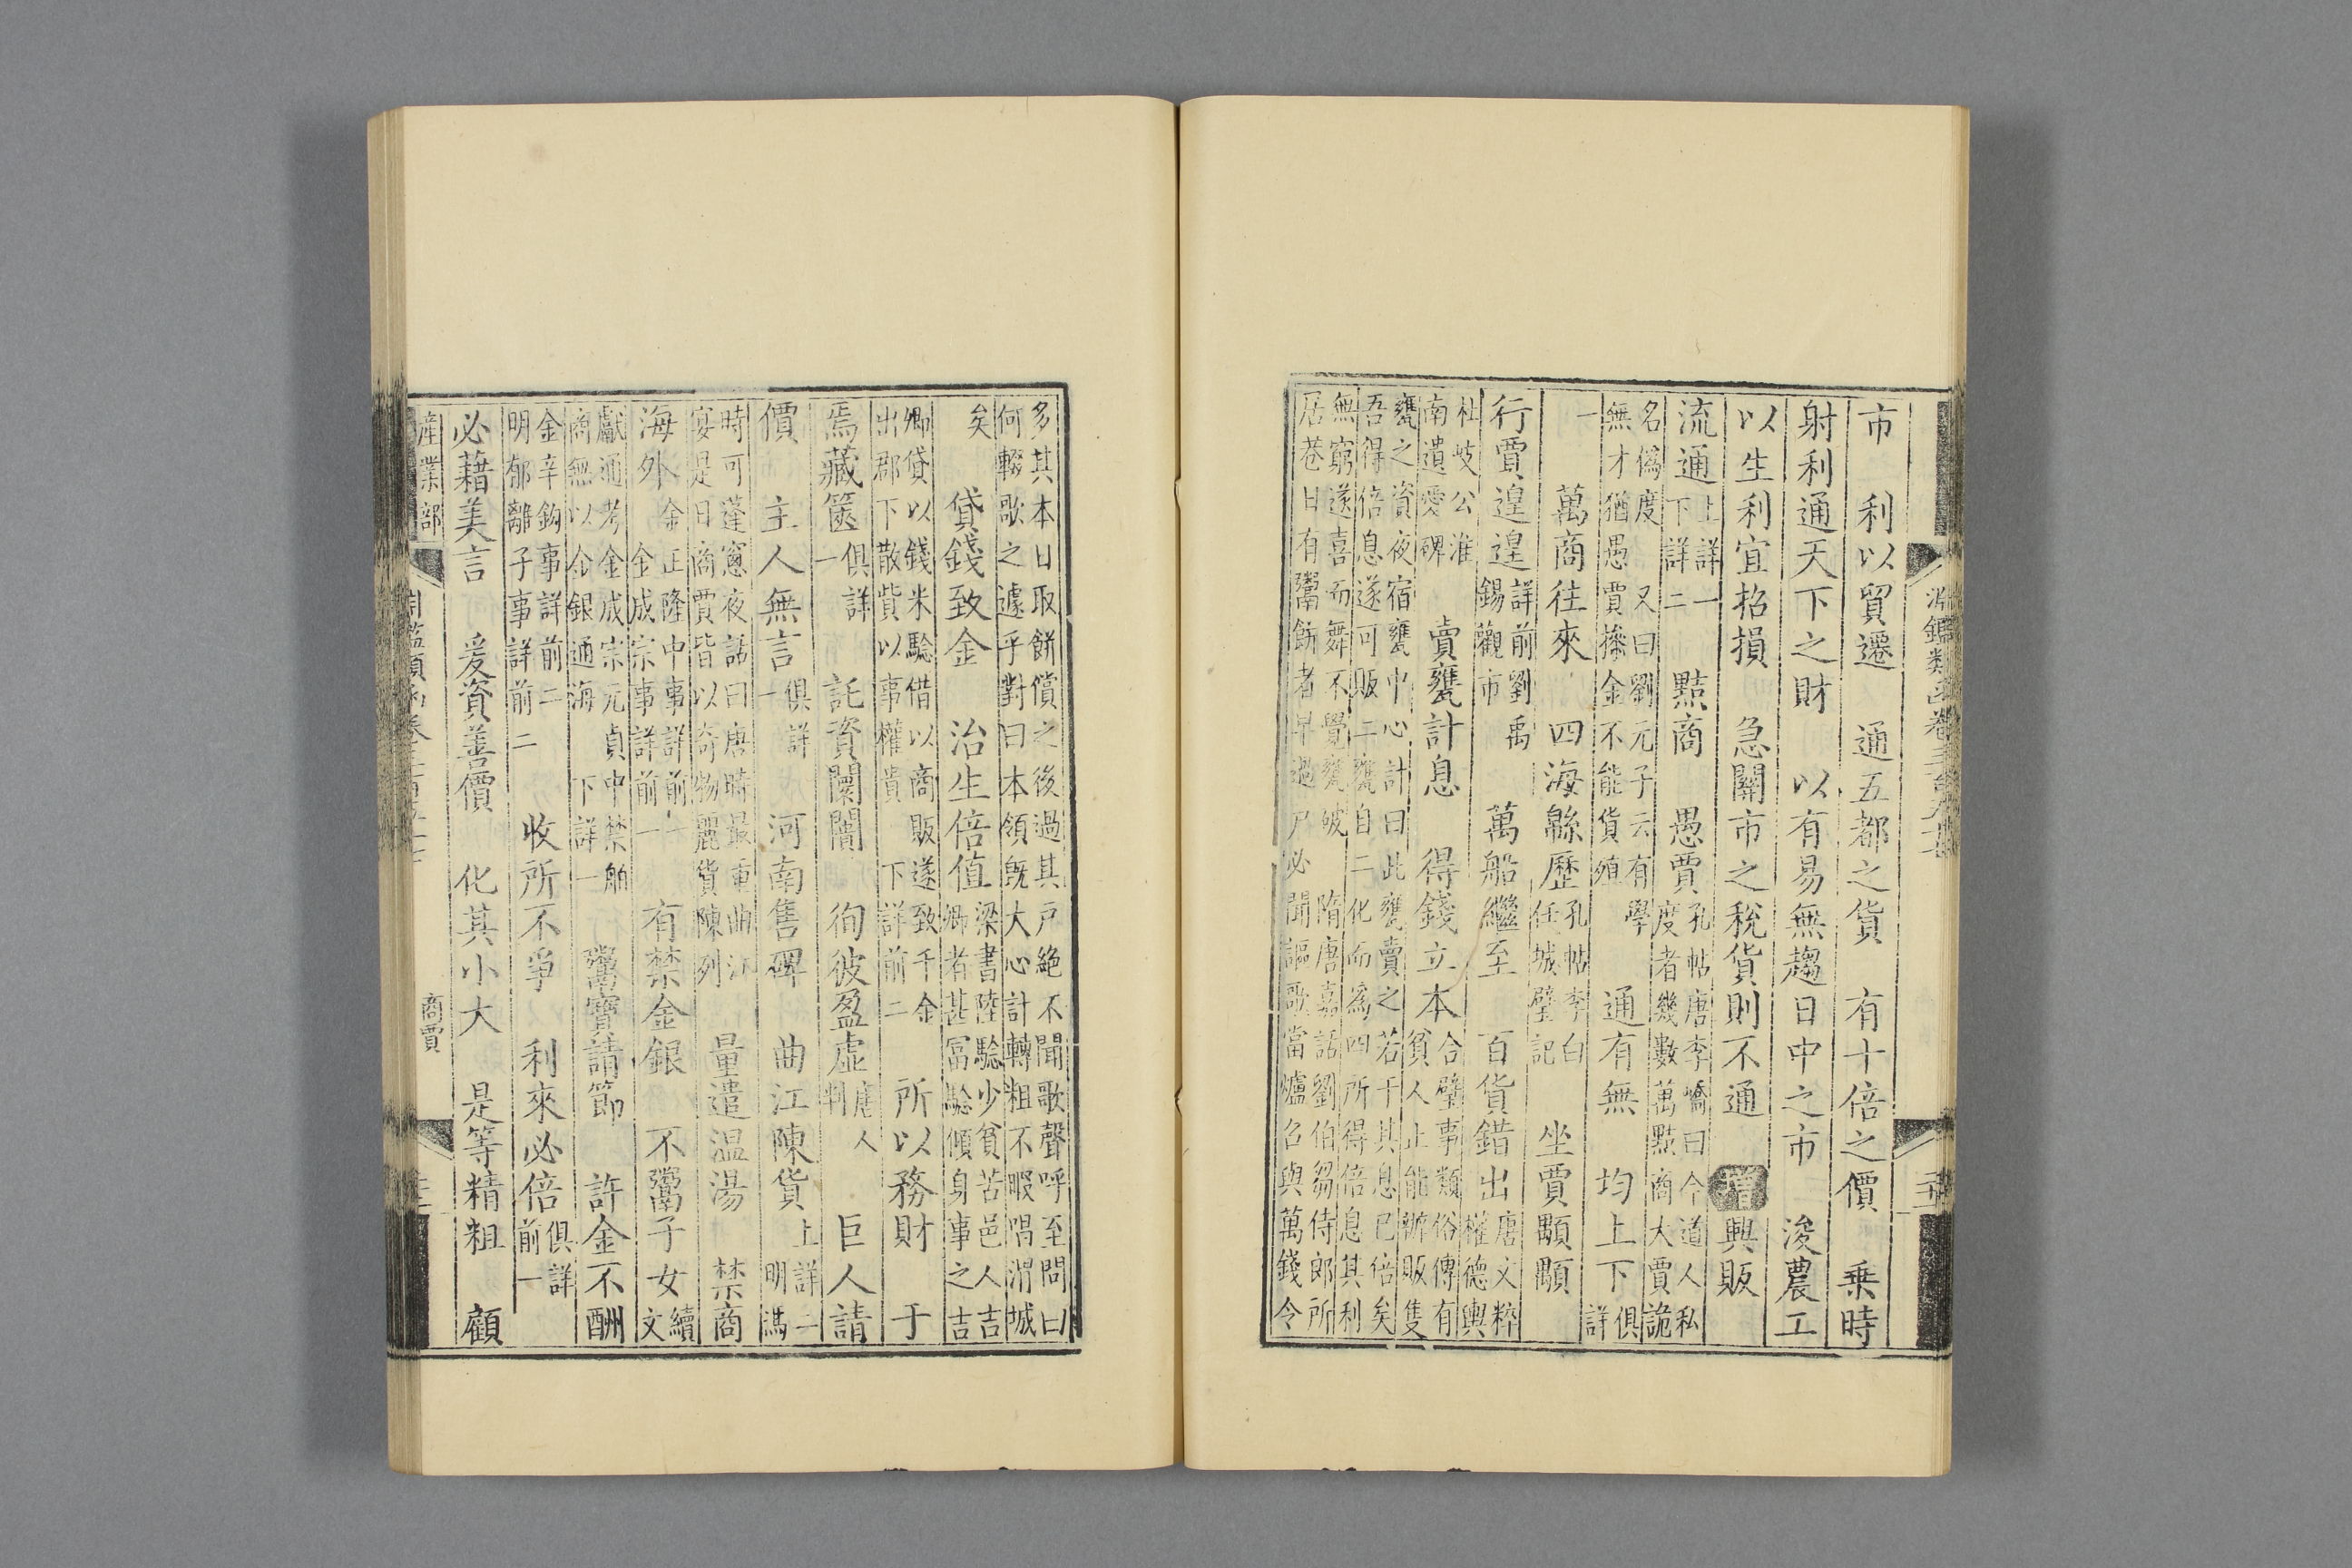 市　利以貿遷　通五都之貨　有十倍之價　乗時
射利通天下之財　以有易無趨日中之市　浚農工
以生利宜招損　急關市之稅貨則不通　增　興販
流通上詳一下詳二　黠商　愚賈孔帖唐李嶠曰今道人私度者幾數萬黠商大賈詭
名偽度　又曰劉元子云有學無才猶愚賈操金不能貨殖　通有無　均上下俱詳
一　萬商往來　四海緜歷孔帖李白任城壁記　坐賈顒顒
行賈遑遑詳前劉禹錫觀市　萬船繼至　百貨錯出唐文粹權德輿
杜岐公淮南遺愛碑　賣甕計息　得錢立本合璧事類俗傳有貧人止能辦販隻
甕之資夜宿甕中心計曰此甕賣之若干其息已倍矣吾得倍息遂可販二甕自二化而為四所得倍息其利
無窮遂喜而舞不覺甕破　隋唐嘉話劉伯芻侍郎所居巷日有鬻餅者早過戶必聞謳歌當爐召與萬錢令
淵鑑類函卷三百
多其本日取餅償之後過其戶絶不聞歌聲呼至問曰何輟歌之遽乎對曰本領既大心計轉粗不暇唱渭城
矣　貸錢致金　治生倍值梁書陸驗少貧苦邑人吉卿者甚冨驗傾身事之吉
卿貸以錢米驗借以商販遂致千金出郡下散貲以事權貴　下詳前二　所以務財　于
焉藏篋俱詳一　託資闤闠　徇彼盈虛唐人判　巨人請
價　主人無言俱詳一　河南售碑　曲江陳貨上詳二明馮
時可蓬窻夜話曰唐時最重曲江宴是日商賈皆以奇物麗貨陳列　量遣温湯　禁商
海外金正隆中事詳前一金成宗事詳前一　有禁金銀　不鬻子女續文
獻通考金成宗元貞中禁舶商無以金銀通海　下詳一　鬻寶請節　許金不酬
金辛鈎事詳前二明郁離子事詳前二　收所不爭　利來必倍俱詳前一
必藉美言　爰資善價　化其小大　是等精粗　顧
產業部
商賈